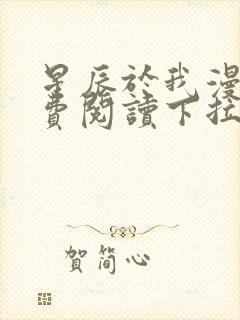 星辰於我漫
費閱讀下拉
賀簡心